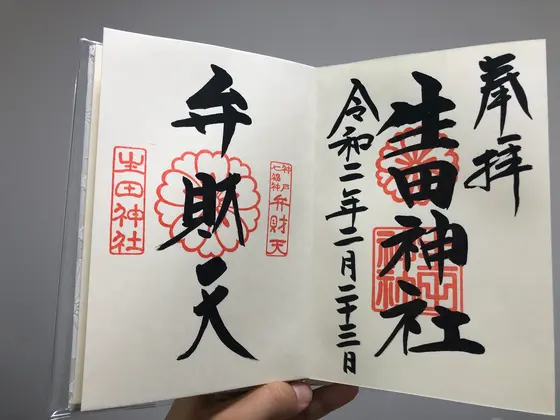 奉拝
生田神社
令和二年二月二十三日
神戸七福神
弁財天
弁財天
生田神社